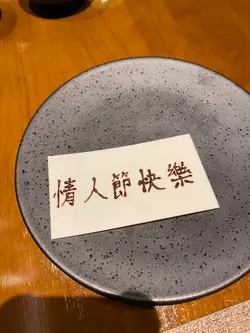 情人節快樂